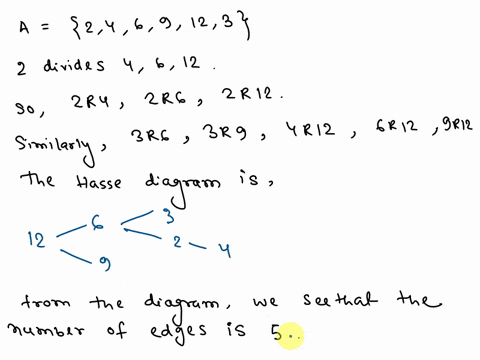 A = {2,4,6,9,12,3}
2 divides 4, 6, 12.
So, 2R4, 2R6, 2R12.
Similarly, 3R6, 3R9, 4R12, 6R12, 9R12
The Hasse diagram is,
3
6
12 2 4
9
from the diagram, we see that the
number of edges is 5..